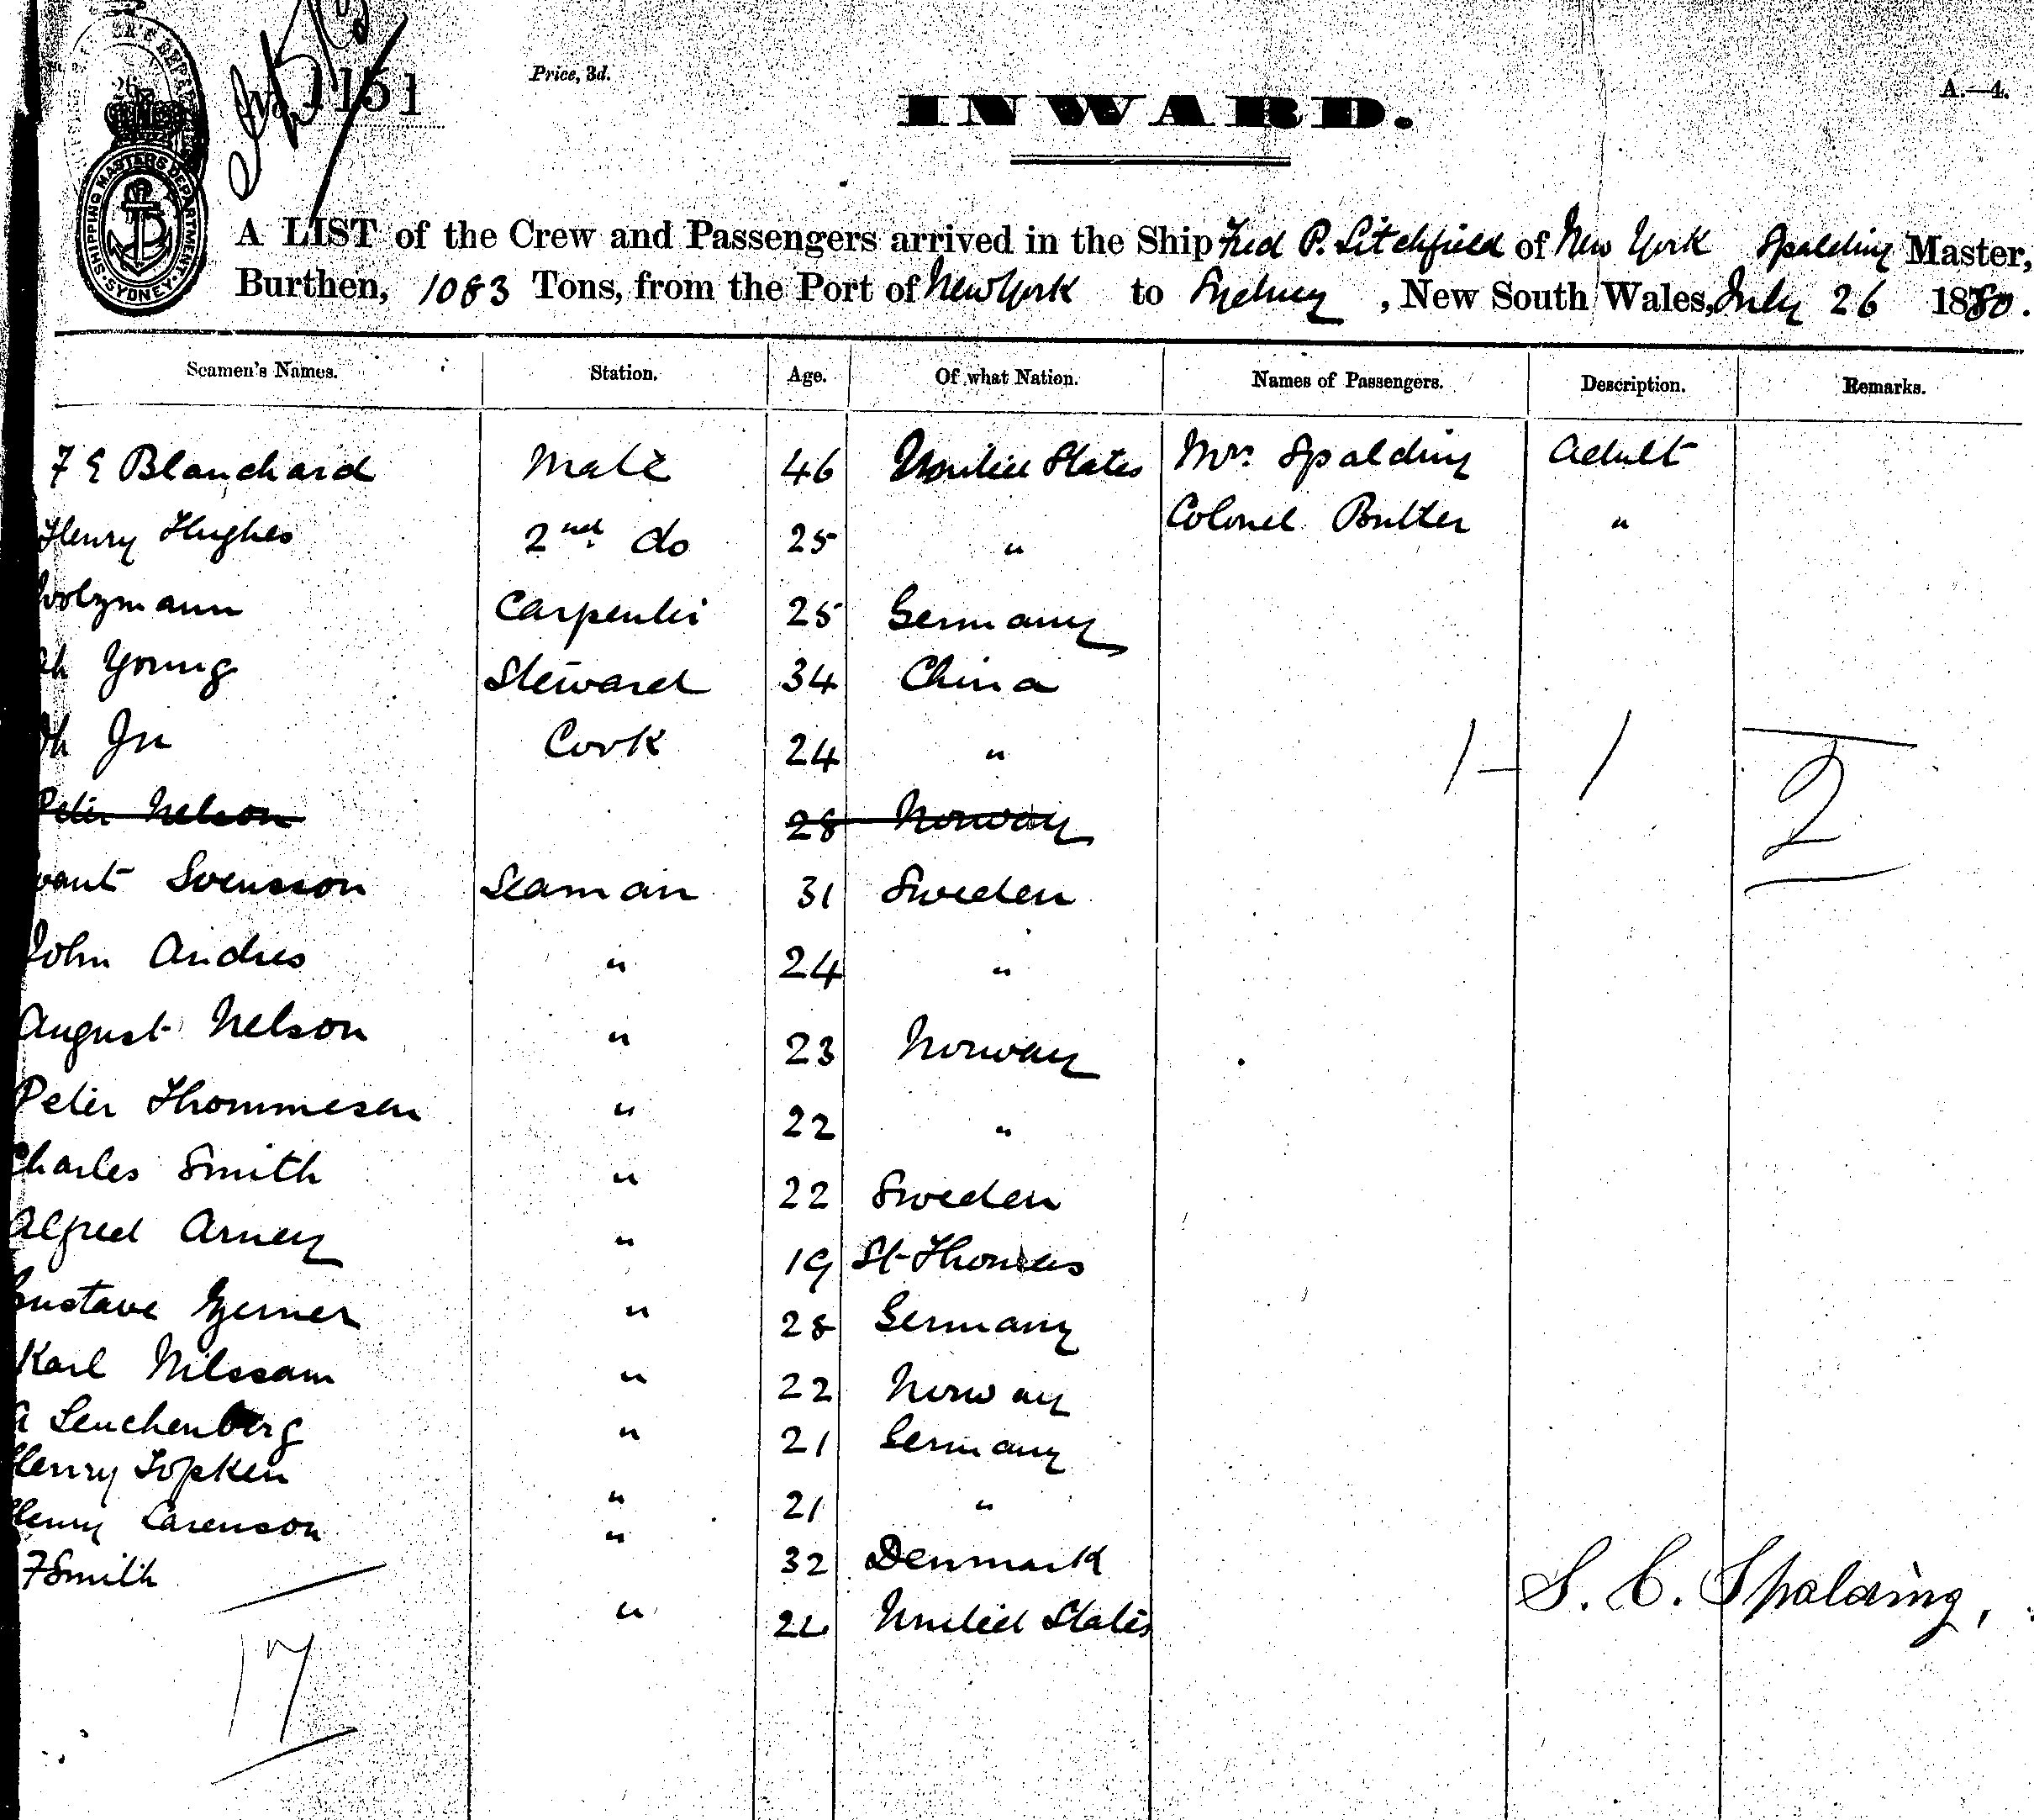 1151
Price, 3d.
INWARD.
A.—4.
SHIPPING MASTERS DEPARTMENT. SYDNEY.
A LIST of the Crew and Passengers arrived in the Ship Fred P. Litchfield of New York Spalding Master,
Burthen, 1083 Tons, from the Port of New York to Sydney, New South Wales, July 26 1880.
Seamen's Names. Station. Age. Of what Nation. Names of Passengers. Description. Remarks.
F E Blanchard Mate 46 United States Mrs. Spalding Adult
Henry Hughes 2nd do 25 " Colonel Butler "
Carpenter 25 Germany
Ah Young Steward 34 China
Cook 24 "
1 – 1 2
Peter Nelson 28 Norway
Svensson Seaman 31 Sweden
John Andres " 24 "
August Nelson " 23 Norway
Peter Thommesen " 22 "
Charles Smith " 22 Sweden
Alfred Arney " 19 St Thomas
Gustave " 28 Germany
Karl Nilssam " 22 Norway
A Leuchenberg " 21 Germany
Henry Topken " 21 "
Henry Larenson " 32 Denmark
F Smith " United States
S. C. Spalding,
17